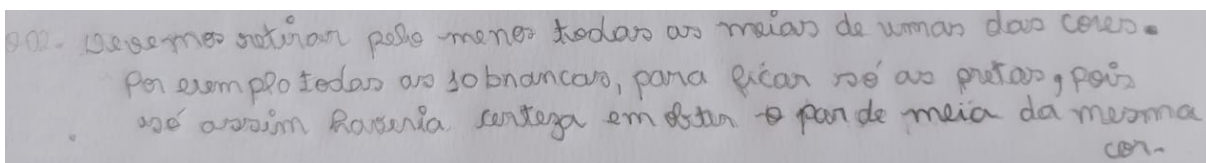 002. devemos retirar pelo menos todas as meias de umas das cores.
Por exemplo todas as 10 brancas, para ficar só as pretas, pois
só assim haveria serteza em obter o par de meia da mesma
cor.